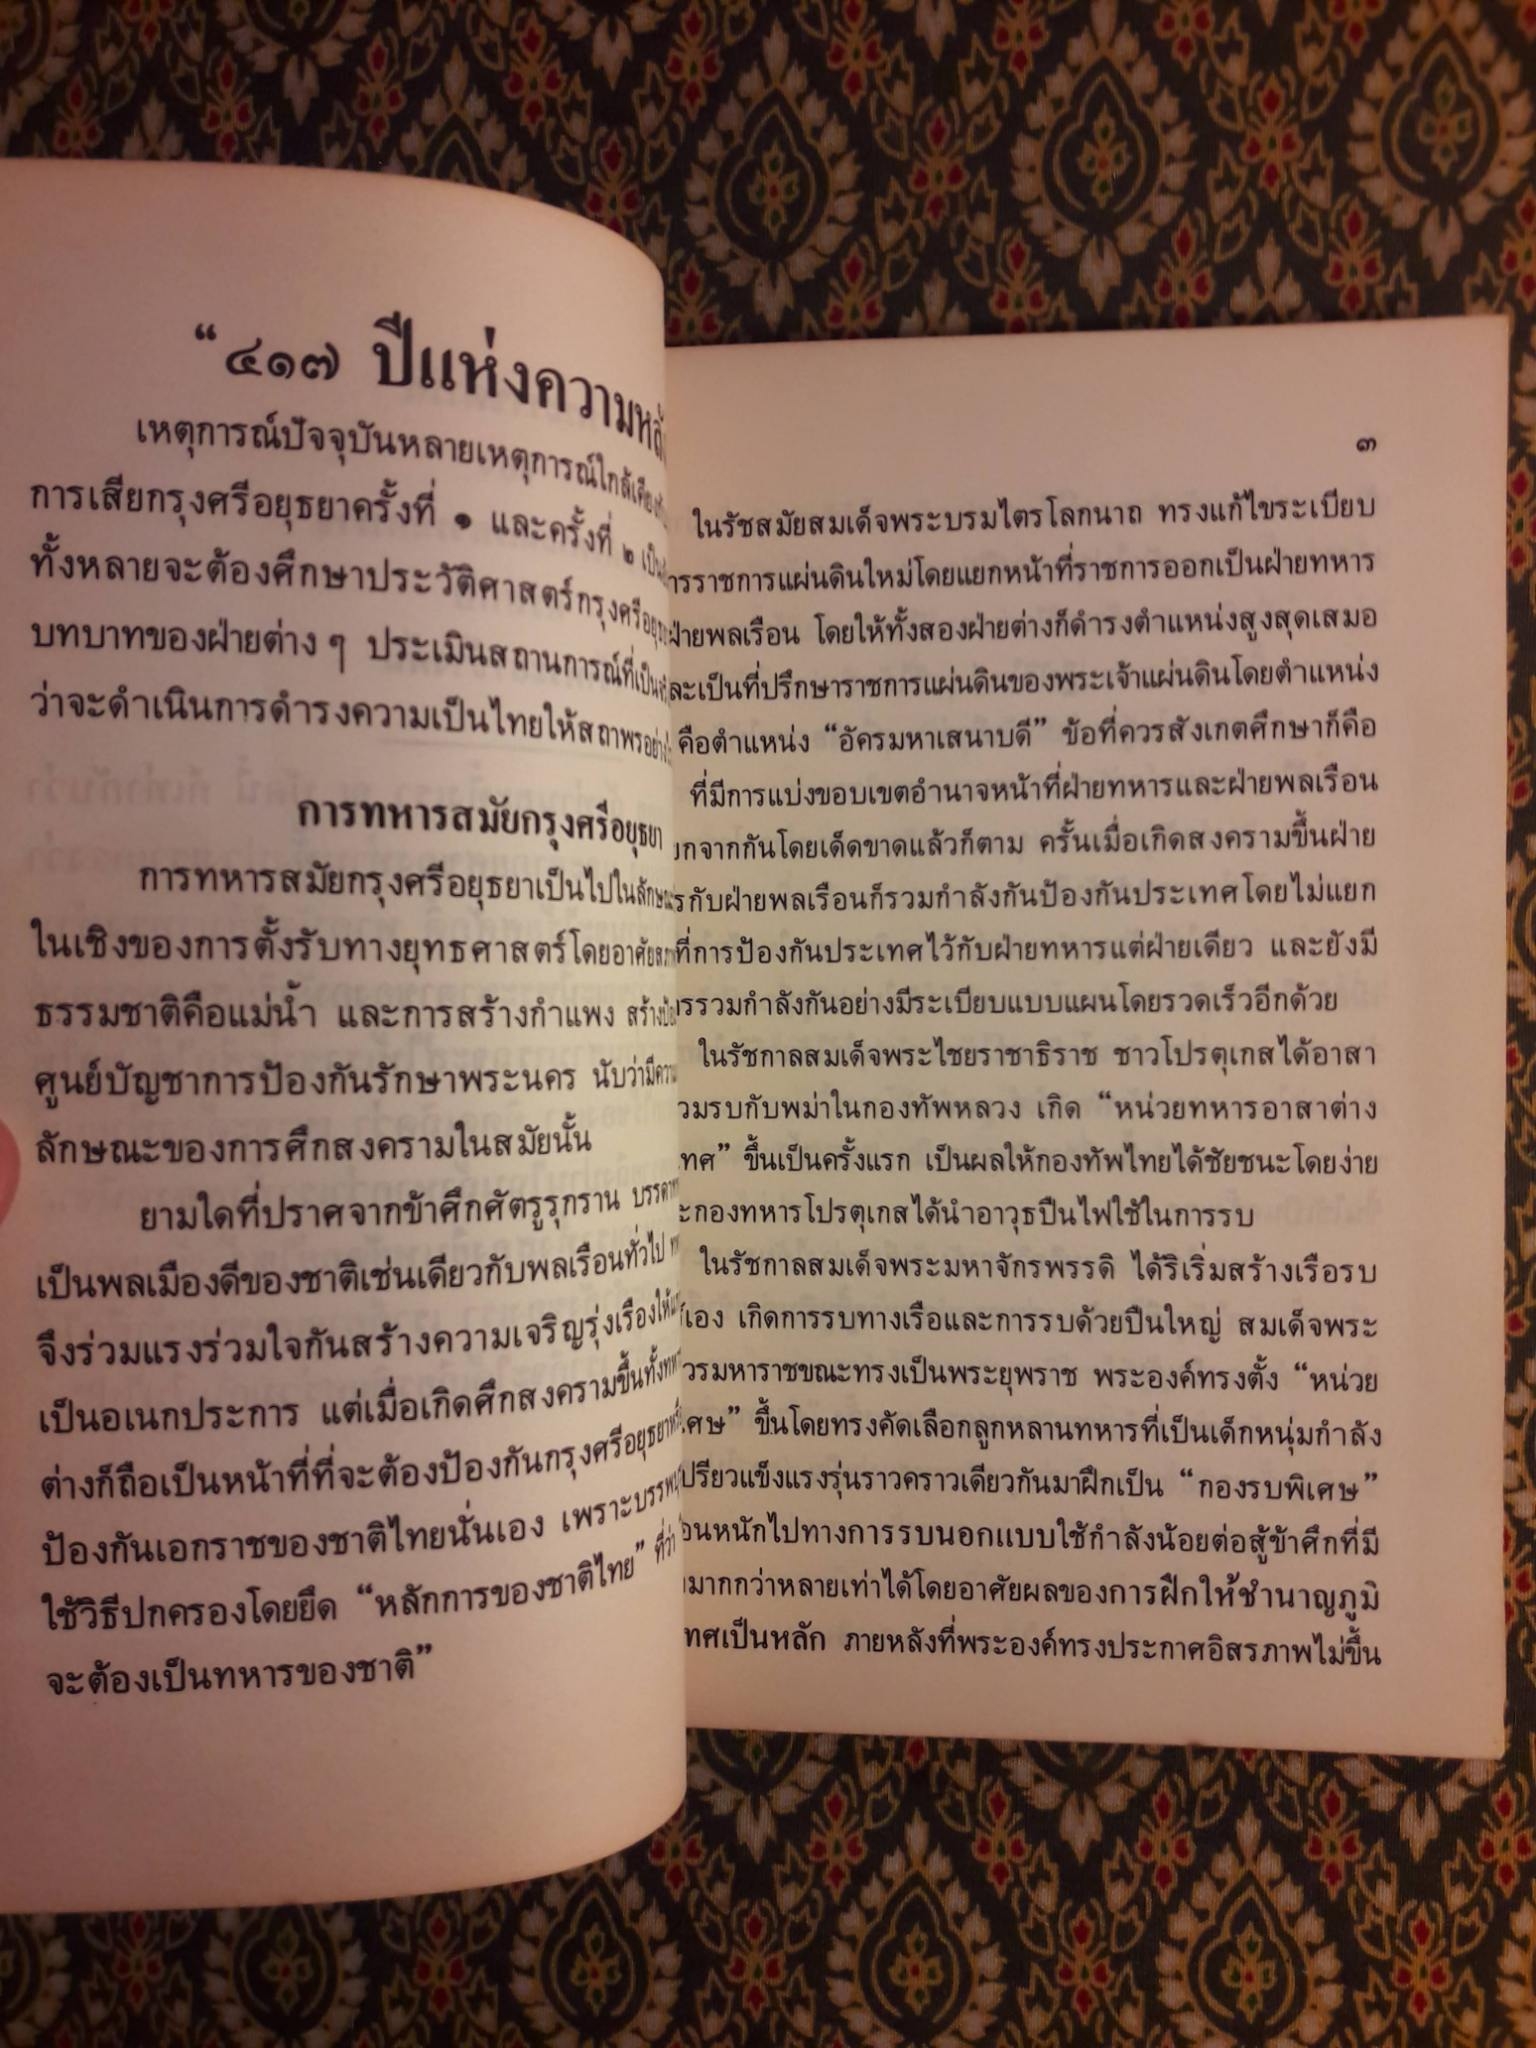 “๔๑๗ ปีแห่งความหลั
เหตุการณ์ปัจจุบันหลายเหตุการณ์ใกล้เคียง
การเสียกรุงศรีอยุธยาครั้งที่ ๑ และครั้งที่ ๒ เป็น
ทั้งหลายจะต้องศึกษาประวัติศาสตร์กรุงศรีอยุธ
บทบาทของฝ่ายต่าง ๆ ประเมินสถานการณ์ที่เป็น
ว่าจะดำเนินการดำรงความเป็นไทยให้สถาพรอย่าง
การทหารสมัยกรุงศรีอยุธยา
การทหารสมัยกรุงศรีอยุธยาเป็นไปในลักษณะ
ในเชิงของการตั้งรับทางยุทธศาสตร์โดยอาศัยสภ
ธรรมชาติคือแม่น้ำ และการสร้างกำแพง สร้างป้อ
ศูนย์บัญชาการป้องกันรักษาพระนคร นับว่ามีควา
ลักษณะของการศึกสงครามในสมัยนั้น
ยามใดที่ปราศจากข้าศึกศัตรูรุกราน บรรดาท
เป็นพลเมืองดีของชาติเช่นเดียวกับพลเรือนทั่วไป
จึงร่วมแรงร่วมใจกันสร้างความเจริญรุ่งเรืองให้แก
เป็นอเนกประการ แต่เมื่อเกิดศึกสงครามขึ้นทั้งทหา
ต่างก็ถือเป็นหน้าที่ที่จะต้องป้องกันกรุงศรีอยุธยาหรื
ป้องกันเอกราชของชาติไทยนั่นเอง เพราะบรรพบุ
ใช้วิธีปกครองโดยยึด “หลักการของชาติไทย” ที่ว่า
จะต้องเป็นทหารของชาติ”
๓
ในรัชสมัยสมเด็จพระบรมไตรโลกนาถ ทรงแก้ไขระเบียบ
ารราชการแผ่นดินใหม่โดยแยกหน้าที่ราชการออกเป็นฝ่ายทหาร
ฝ่ายพลเรือน โดยให้ทั้งสองฝ่ายต่างก็ดำรงตำแหน่งสูงสุดเสมอ
ละเป็นที่ปรึกษาราชการแผ่นดินของพระเจ้าแผ่นดินโดยตำแหน่ง
คือตำแหน่ง “อัครมหาเสนาบดี” ข้อที่ควรสังเกตศึกษาก็คือ
ที่มีการแบ่งขอบเขตอำนาจหน้าที่ฝ่ายทหารและฝ่ายพลเรือน
ยกจากกันโดยเด็ดขาดแล้วก็ตาม ครั้นเมื่อเกิดสงครามขึ้นฝ่าย
รกับฝ่ายพลเรือนก็รวมกำลังกันป้องกันประเทศโดยไม่แยก
ที่การป้องกันประเทศไว้กับฝ่ายทหารแต่ฝ่ายเดียว และยังมี
ารรวมกำลังกันอย่างมีระเบียบแบบแผนโดยรวดเร็วอีกด้วย
ในรัชกาลสมเด็จพระไชยราชาธิราช ชาวโปรตุเกสได้อาสา
วมรบกับพม่าในกองทัพหลวง เกิด “หน่วยทหารอาสาต่าง
เทศ” ขึ้นเป็นครั้งแรก เป็นผลให้กองทัพไทยได้ชัยชนะโดยง่าย
ะกองทหารโปรตุเกสได้นำอาวุธปืนไฟใช้ในการรบ
ในรัชกาลสมเด็จพระมหาจักรพรรดิ ได้ริเริ่มสร้างเรือรบ
เอง เกิดการรบทางเรือและการรบด้วยปืนใหญ่ สมเด็จพระ
วรมหาราชขณะทรงเป็นพระยุพราช พระองค์ทรงตั้ง “หน่วย
เศษ” ขึ้นโดยทรงคัดเลือกลูกหลานทหารที่เป็นเด็กหนุ่มกำลัง
ปรียวแข็งแรงรุ่นราวคราวเดียวกันมาฝึกเป็น “กองรบพิเศษ”
อนหนักไปทางการรบนอกแบบใช้กำลังน้อยต่อสู้ข้าศึกที่มี
มากกว่าหลายเท่าได้โดยอาศัยผลของการฝึกให้ชำนาญภูมิ
ทศเป็นหลัก ภายหลังที่พระองค์ทรงประกาศอิสรภาพไม่ขึ้น